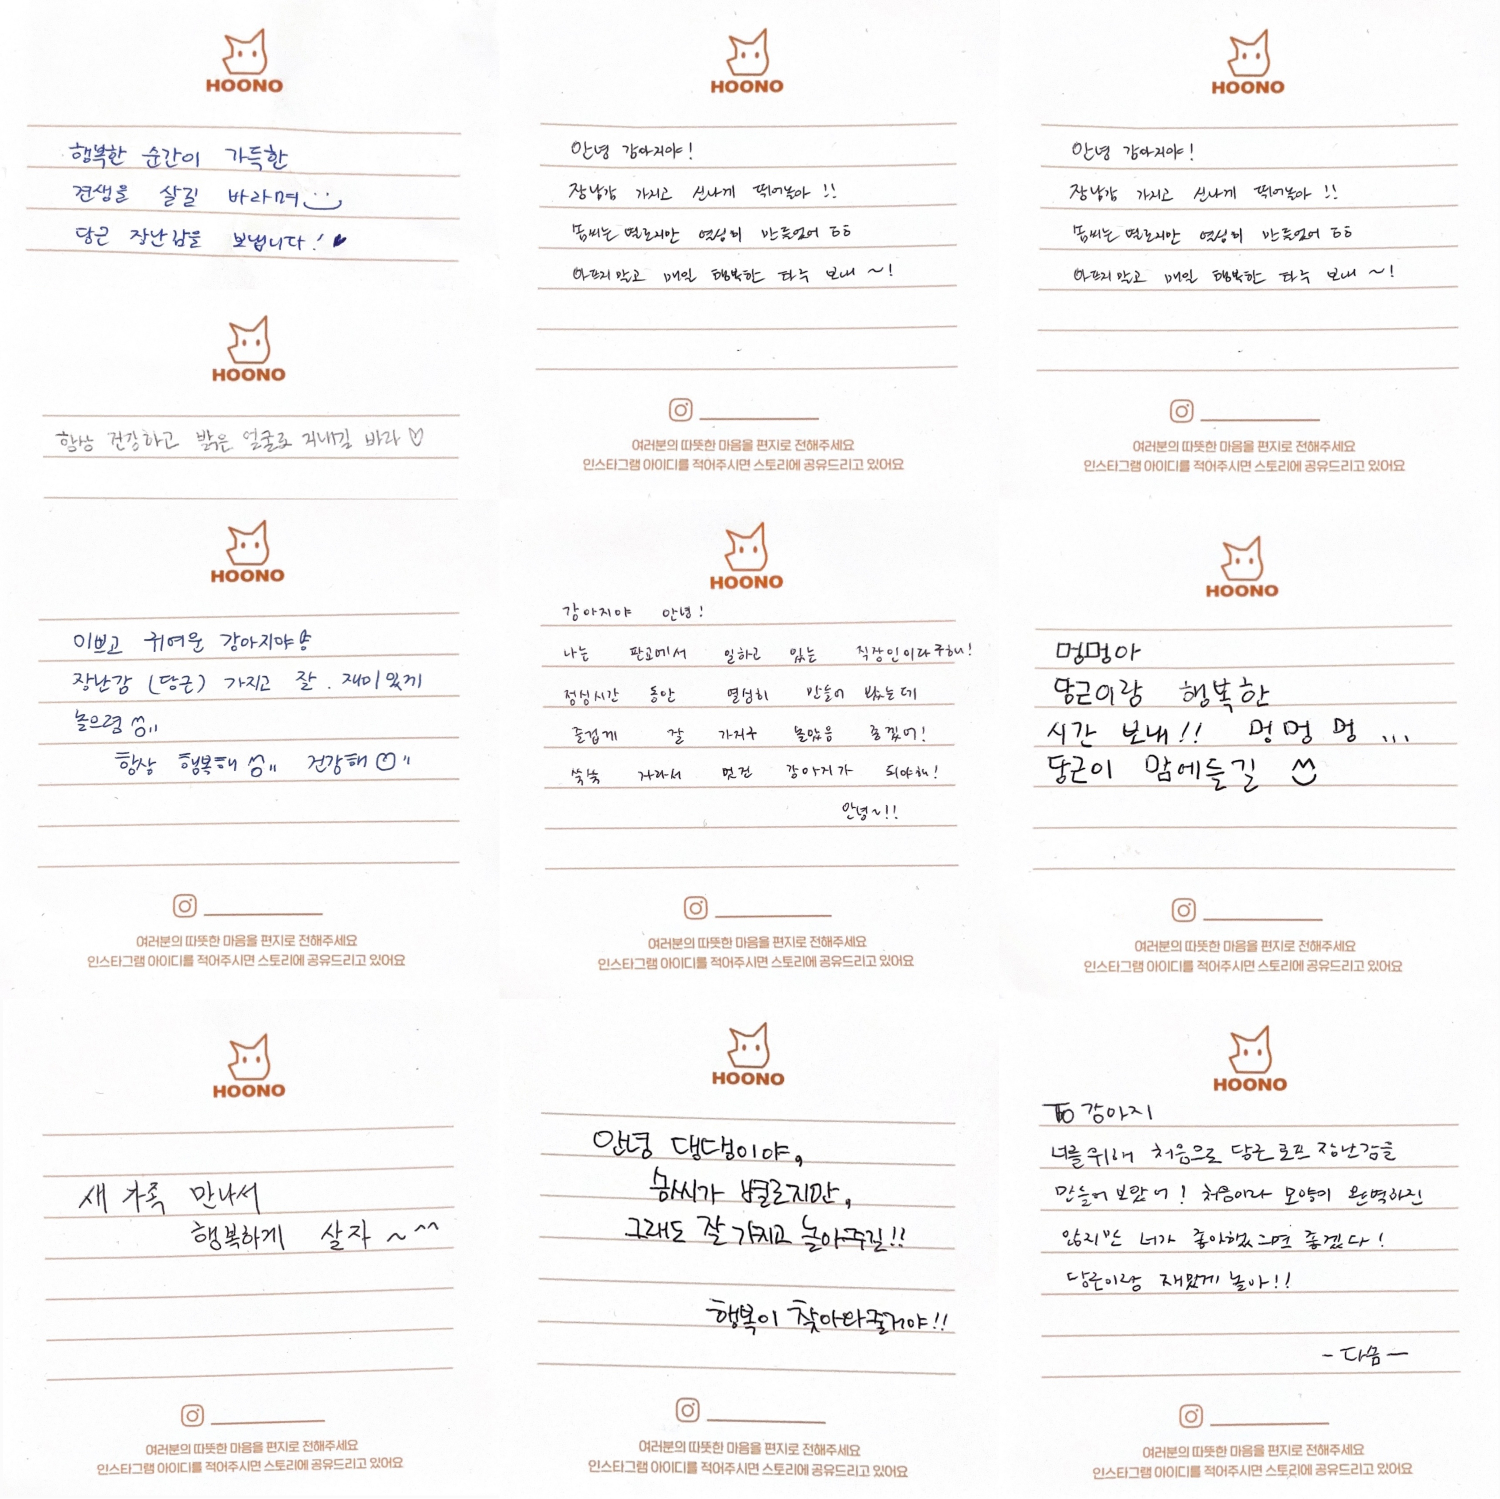 HOONO
행복한 순간이 가득한
견생을 살길 바라며
당근 장난감을 보냅니다!
HOONO
항상 건강하고 밝은 얼굴로 지내길 바라♡
HOONO
안녕 강아지야!
장난감 가지고 신나게 뛰어놀아!!
솜씨는 별로지만 열심히 만들었어 ㅎㅎ
아프지말고 매일 행복한 하루 보내~!
여러분의 따뜻한 마음을 편지로 전해주세요
인스타그램 아이디를 적어주시면 스토리에 공유드리고 있어요
HOONO
안녕 강아지야!
장난감 가지고 신나게 뛰어놀아!!
솜씨는 별로지만 열심히 만들었어 ㅎㅎ
아프지말고 매일 행복한 하루 보내~!
여러분의 따뜻한 마음을 편지로 전해주세요
인스타그램 아이디를 적어주시면 스토리에 공유드리고 있어요
HOONO
이쁘고 귀여운 강아지야
장난감 (당근) 가지고 잘. 재미있게
놀으렴
항상 행복해 건강해
여러분의 따뜻한 마음을 편지로 전해주세요
인스타그램 아이디를 적어주시면 스토리에 공유드리고 있어요
HOONO
강아지야 안녕!
나는 판교에서 일하고 있는 직장인이라구해!
점심시간 동안 열심히 만들어 봤는데
즐겁게 잘 가지구 놀았음 좋겠어!
쑥쑥 자라서 멋진 강아지가 되야해!
안녕~!!
여러분의 따뜻한 마음을 편지로 전해주세요
인스타그램 아이디를 적어주시면 스토리에 공유드리고 있어요
HOONO
멍멍아
당근이랑 행복한
시간 보내!! 멍 멍 멍 ...
당근이 맘에들길
여러분의 따뜻한 마음을 편지로 전해주세요
인스타그램 아이디를 적어주시면 스토리에 공유드리고 있어요
HOONO
새 가족 만나서
행복하게 살자~^^
여러분의 따뜻한 마음을 편지로 전해주세요
인스타그램 아이디를 적어주시면 스토리에 공유드리고 있어요
HOONO
안녕 댕댕이야,
솜씨가 별로지만,
그래도 잘 가지고 놀아주길!!
행복이 찾아와줄거야!!
여러분의 따뜻한 마음을 편지로 전해주세요
인스타그램 아이디를 적어주시면 스토리에 공유드리고 있어요
HOONO
To 강아지
너를위해 처음으로 당근 로프 장난감을
만들어 보았어! 처음이라 모양이 완벽하진
않지만 너가 좋아했으면 좋겠다!
당근이랑 재밌게 놀아!!
-다솜-
여러분의 따뜻한 마음을 편지로 전해주세요
인스타그램 아이디를 적어주시면 스토리에 공유드리고 있어요